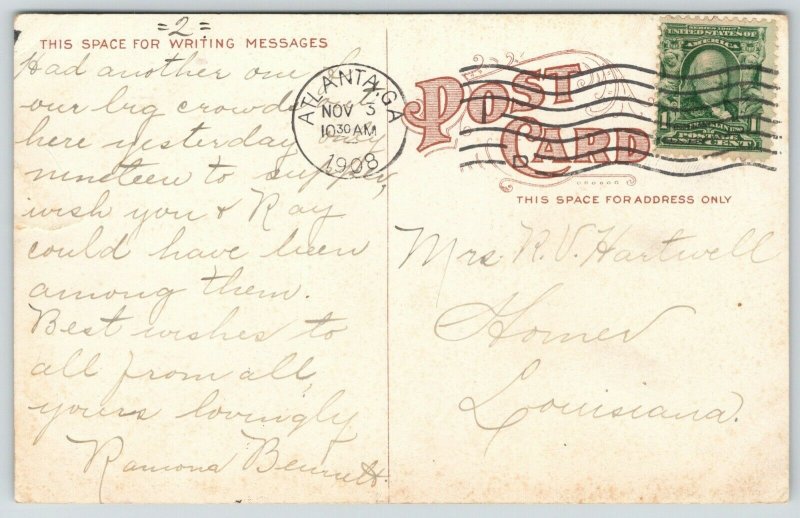 =2=
THIS SPACE FOR WRITING MESSAGES
Had another one
our big crowds
here yesterday only
nineteen to supper,
wish you & Ray
could have been
among them.
Best wishes to
all from all,
yours lovingly
Ramona Bennett.
ATLANTA, GA
NOV 3
10 30 AM
1908
POST
CARD
D
SERIES 1902
UNITED STATES OF
AMERICA
FRANKLIN
1 POSTAGE 1
ONE CENT
THIS SPACE FOR ADDRESS ONLY
Mrs. R. V. Hartwell
Homer
Louisiana.